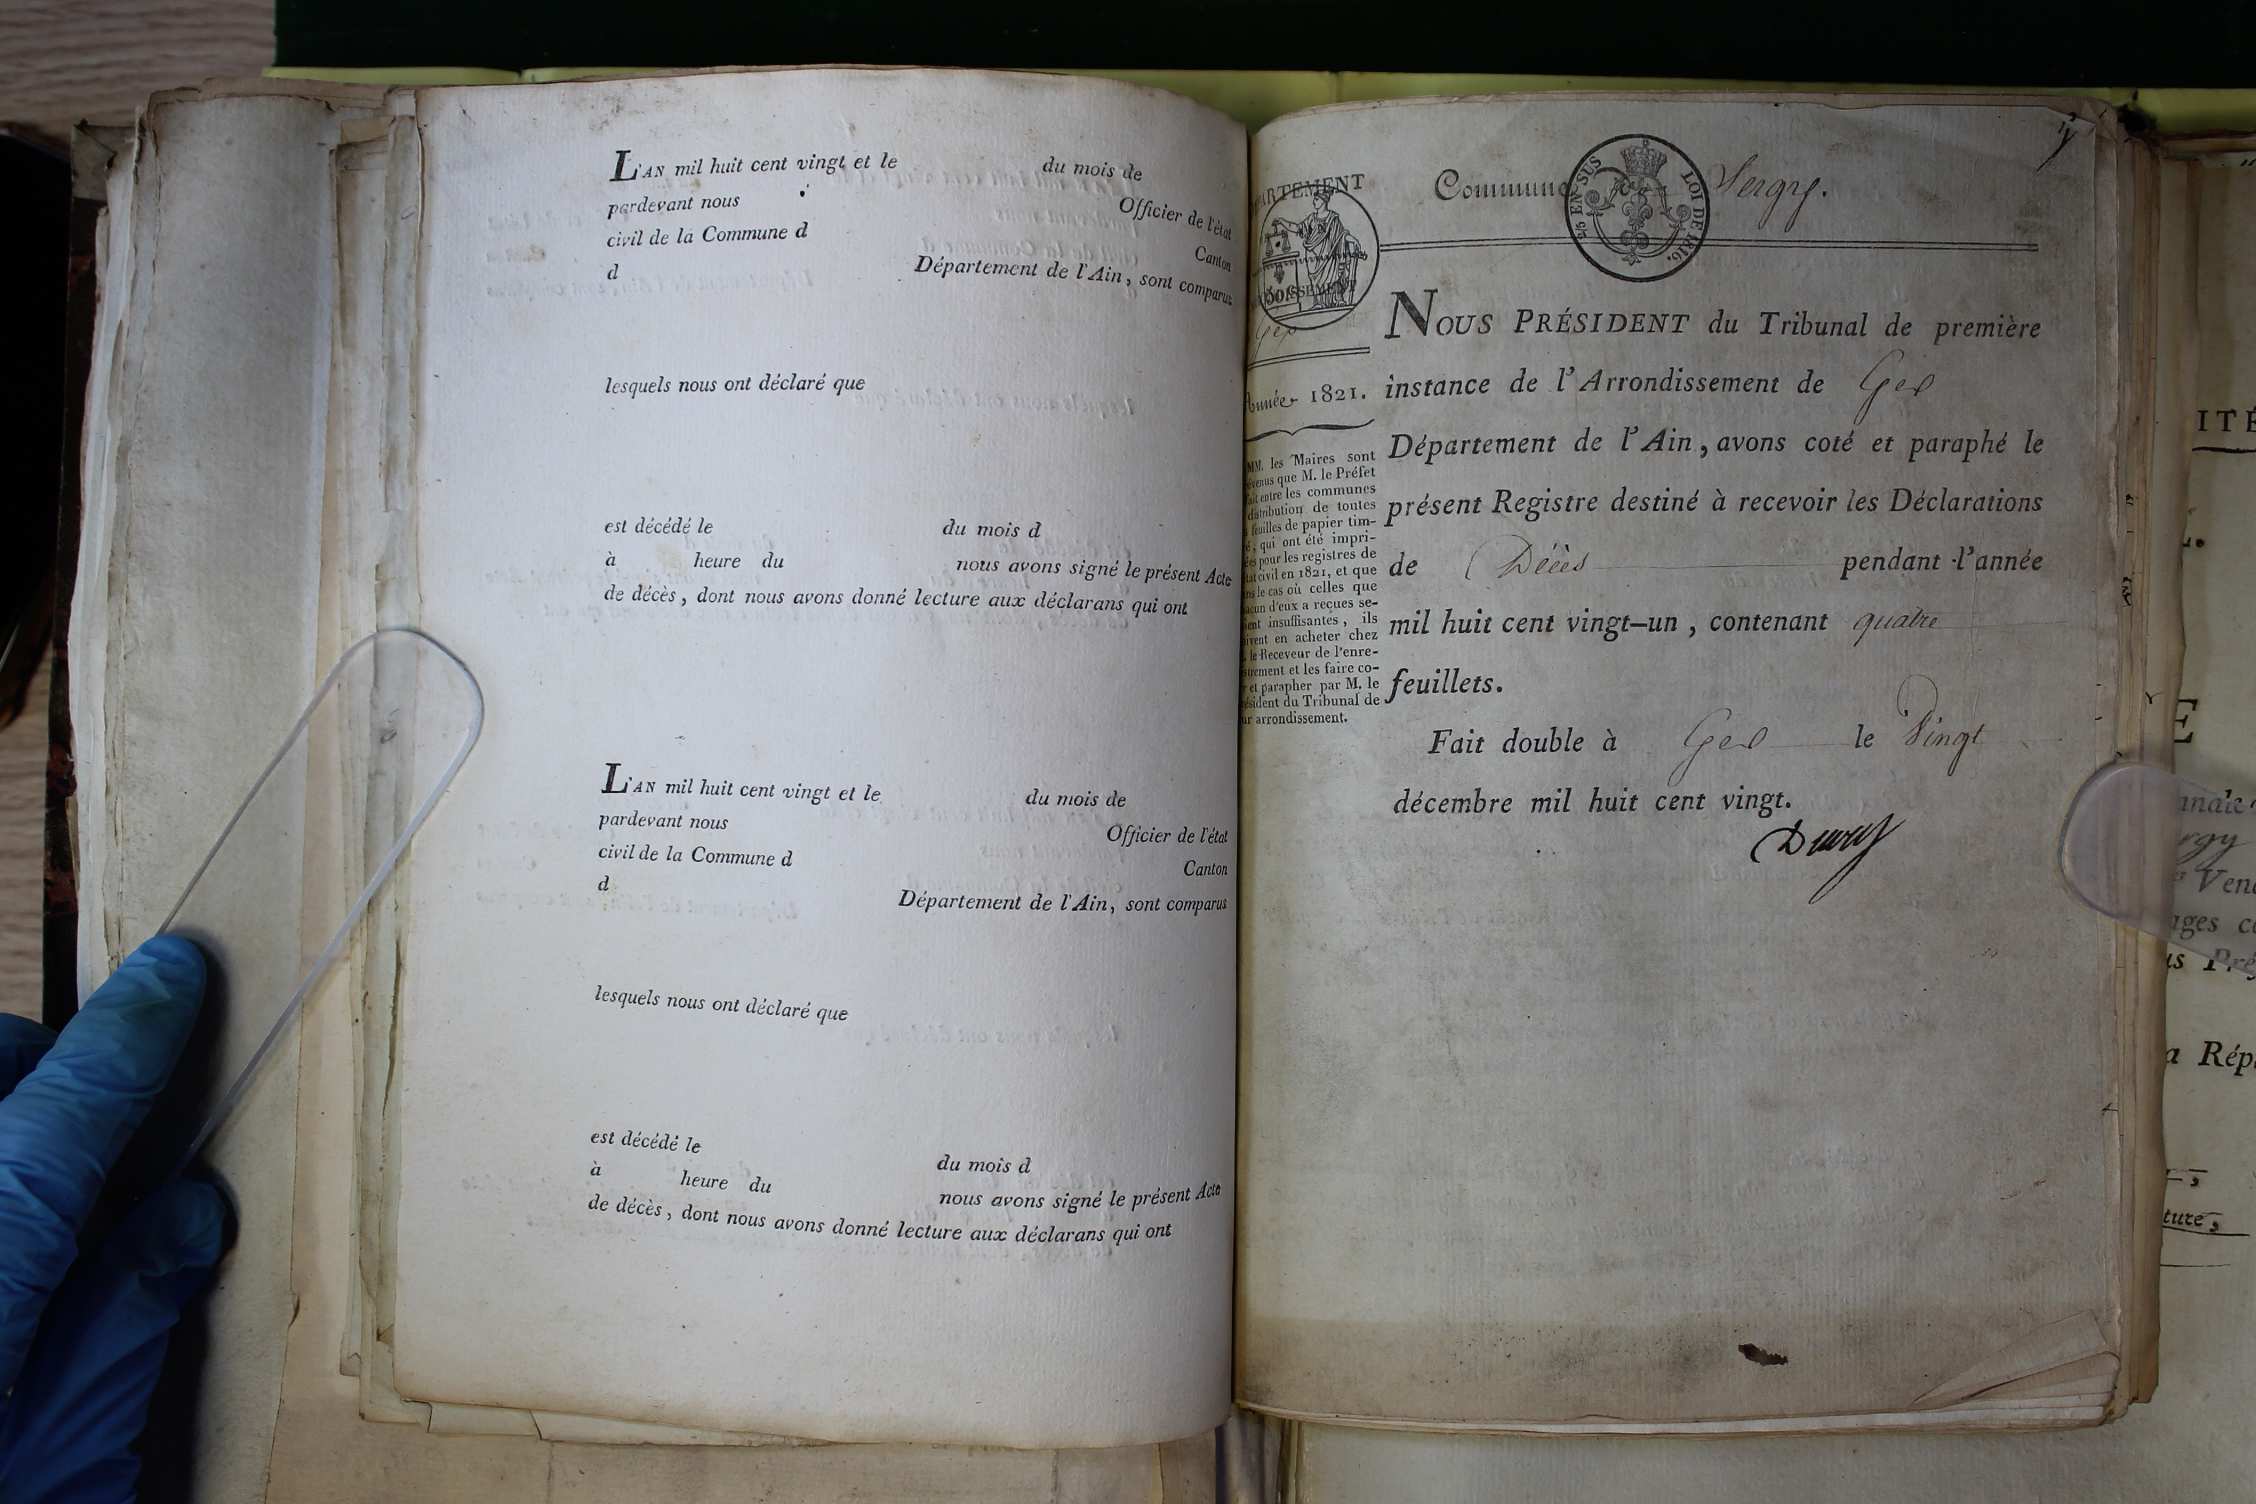 L'AN mil huit cent vingt et le du mois de
pardevant nous Officier de l'état
civil de la Commune d Canton
d Département de l'Ain, sont comparus
lesquels nous ont déclaré que
est décédé le du mois d
à heure du nous avons signé le présent Acte
de décès, dont nous avons donné lecture aux déclarans qui ont
L'AN mil huit cent vingt et le du mois de
pardevant nous Officier de l'état
civil de la Commune d Canton
d Département de l'Ain, sont comparus
lesquels nous ont déclaré que
est décédé le du mois d
à heure du nous avons signé le présent Acte
de décès, dont nous avons donné lecture aux déclarans qui ont
Commune Sergy.
25 EN SUS LOI DE 1816.
PARTEMENT
DISSEMENT
Gex
Année 1821.
MM. les Maires sont
évenus que M. le Préfet
fait entre les communes
distribution de toutes
feuilles de papier tim-
é, qui ont été impri-
ées pour les registres de
tat civil en 1821, et que
ns le cas où celles que
acun d'eux a reçues se-
ient insuffisantes, ils
oivent en acheter chez
. le Receveur de l'enre-
strement et les faire co-
r et parapher par M. le
résident du Tribunal de
ur arrondissement.
NOUS PRÉSIDENT du Tribunal de première
instance de l'Arrondissement de Gex
Département de l'Ain, avons coté et paraphé le
présent Registre destiné à recevoir les Déclarations
de Décès pendant l'année
mil huit cent vingt-un, contenant quatre
feuillets.
Fait double à Gex le Vingt
décembre mil huit cent vingt.
ITÉ
E
rgy
Vend
ages co
us Pré
a Répu
ture,